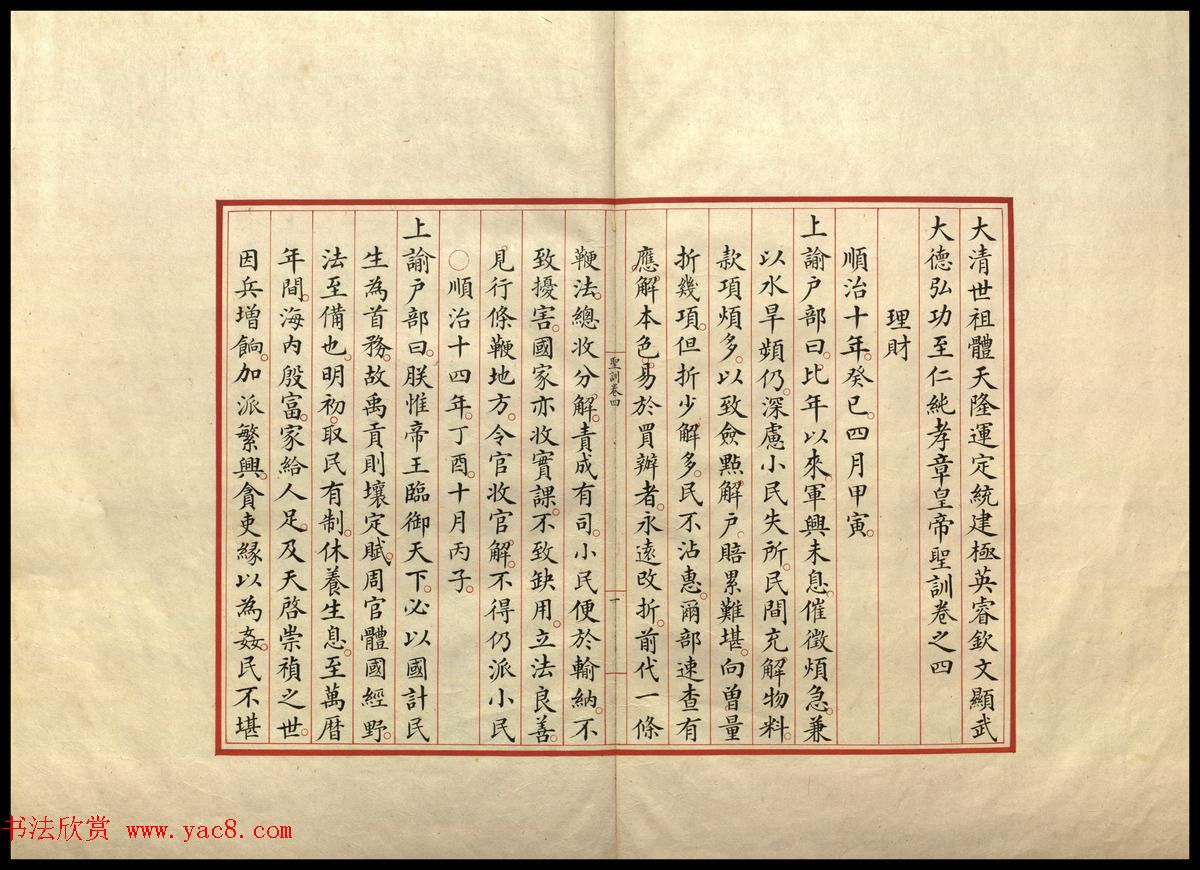 大清世祖體天隆運定統建極英睿欽文顯武
大德弘功至仁純孝章皇帝聖訓卷之四
理財
順治十年癸巳四月甲寅
上諭戶部曰比年以來軍興未息催徵煩急兼
以水旱頻仍深慮小民失所民間充解物料
款項煩多以致僉點解戶賠累難堪向曾量
折幾項但折少解多民不沾惠爾部速查有
應解本色易於買辦者永遠改折前代一條
聖訓卷四
一
鞭法總收分解責成有司小民便於輸納不
致擾害國家亦收實課不致缺用立法良善
見行條鞭地方令官收官解不得仍派小民
○順治十四年丁酉十月丙子
上諭戶部曰朕惟帝王臨御天下必以國計民
生為首務故禹貢則壤定賦周官體國經野
法至備也明初取民有制休養生息至萬曆
年間海內殷富家給人足及天啓崇禎之世
因兵增餉加派繁興貪吏緣以為姦民不堪
书法欣赏 www.yac8.com